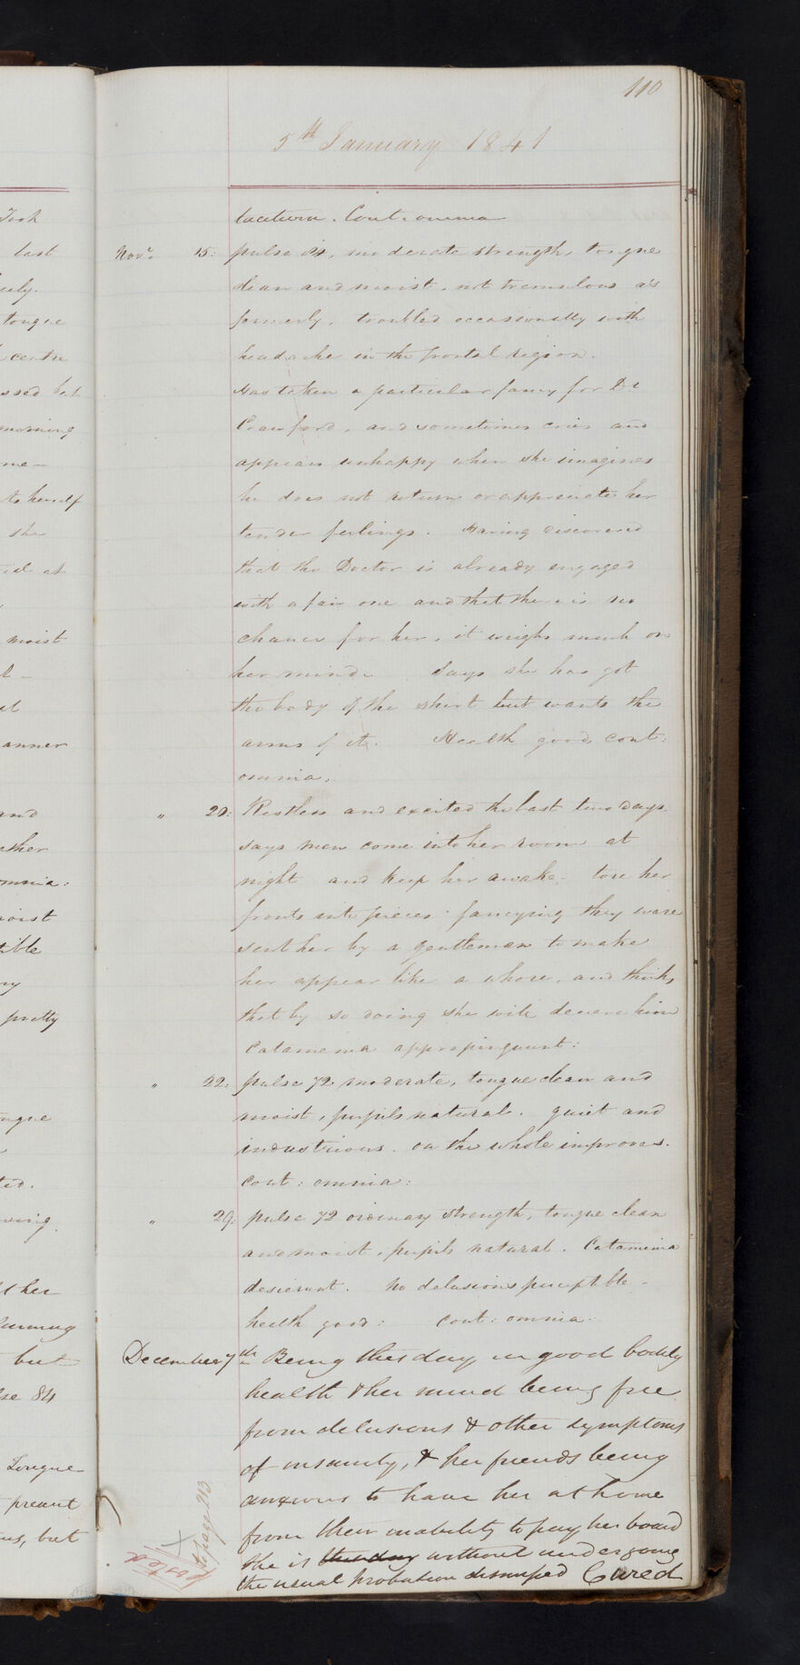 Took
last
tongue
centre
morning
me
to herself
she
moist
anner
and
moist
pretty
but
84
Tongue
present
but
110
5th January 1841
Cont. omnia
Novr. 15. pulse moderate strength, tongue
clean and moist, not tremulous as
formerly, troubled occasionally with
headache in the frontal region.
Has taken a particular fancy for Dr
Crawford, and sometimes cries and
appears unhappy when she imagines
he does not return or appreciate her
tender feelings. Having discovered
that the Doctor is already engaged
with a fair one and that there is no
chance for her, it weighs much on
her mind. Says she has got
the body of the shirt but wants the
arms of it. Health good cont:
omnia.
" 20: Restless and excited the last two days.
says men come into her room at
night and keep her awake. tore her
fronts into pieces: fancying they were
sent her by a gentleman to make
her appear like a whore, and thinks
that by so doing she will deceive him
Catamenia appropinquant:
" 22. pulse 72 moderate, tongue clean and
moist, pupils natural. quiet and
industrious. on the whole improves.
cont: omnia:
" 29. pulse 72 ordinary strength, tongue clean
and moist, pupils natural. Catamenia
desierunt. No delusions perceptible.
health good: cont: omnia.
December 7th Being this day in good bodily
health & her mind being free
from delusions & other symptoms
of insanity, & her friends being
anxious to have her at home
from their inability to pay her board
she is this day without undergoing
the usual probation dismissed Cured
to page 213
Posted